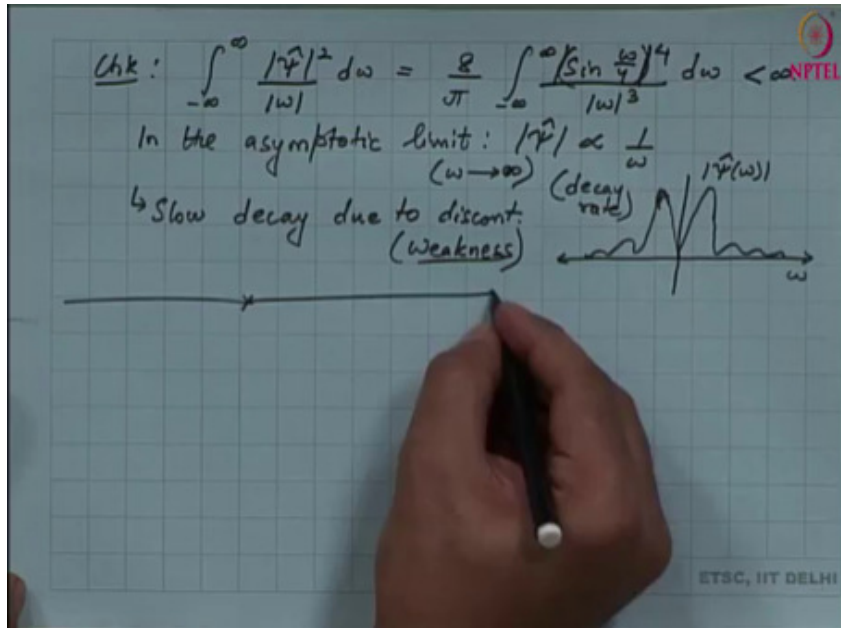 Chk: ∫_{-∞}^{∞} |ψ̂|² / |ω| dω = 8/π ∫_{-∞}^{∞} |(sin ω/4)|⁴ / |ω|³ dω < ∞
NPTEL
In the asymptotic limit: |ψ̂| ∝ 1/ω
(ω → ∞) (decay rate)
|ψ̂(ω)|
↳ Slow decay due to discont.
(weakness)
ω
ETSC, IIT DELHI